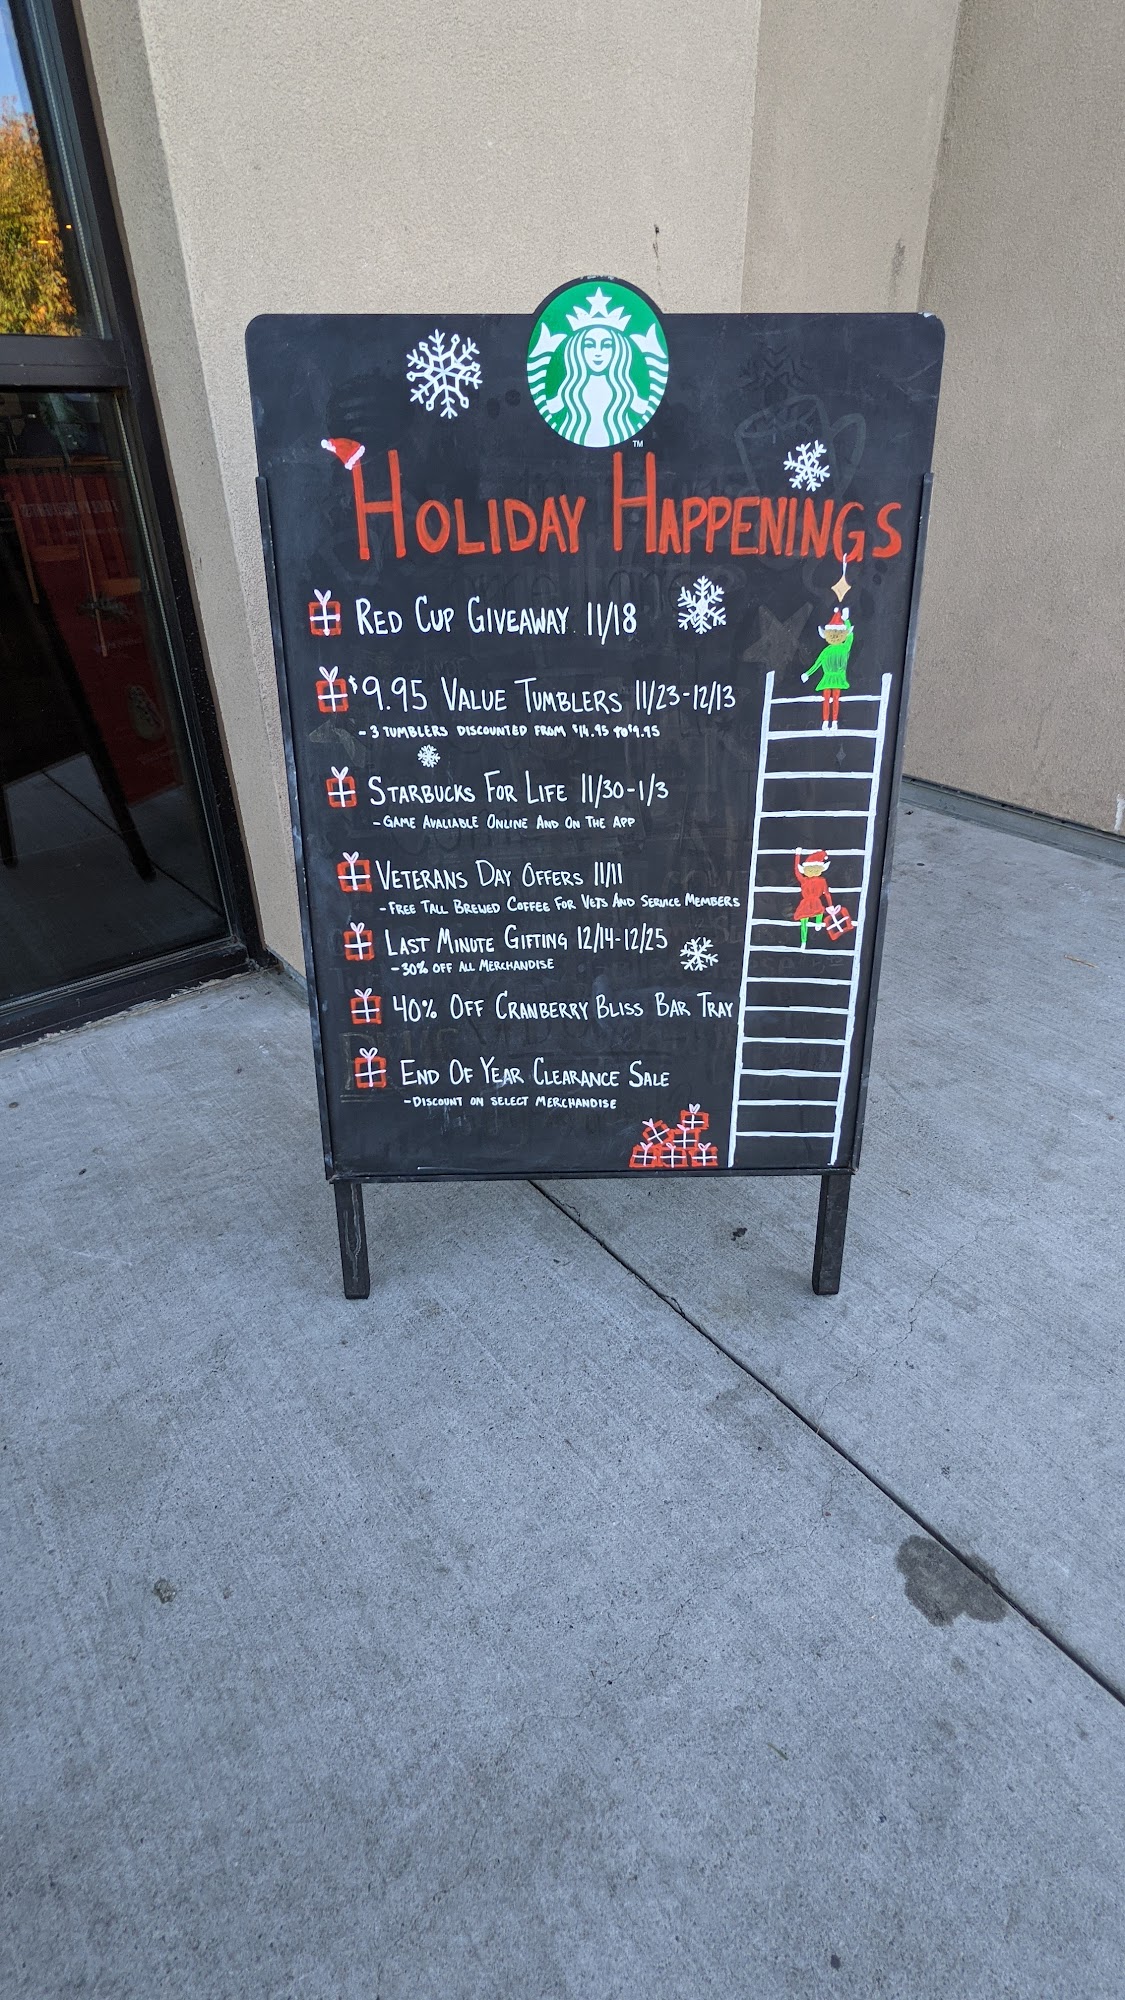 TM
HOLIDAY HAPPENINGS
RED CUP GIVEAWAY 11/18
$9.95 VALUE TUMBLERS 11/23-12/13
- 3 TUMBLERS DISCOUNTED FROM $14.95 TO $9.95
STARBUCKS FOR LIFE 11/30-1/3
- GAME AVALIABLE ONLINE AND ON THE APP
VETERANS DAY OFFERS 11/11
- FREE TALL BREWED COFFEE FOR VETS AND SERVICE MEMBERS
LAST MINUTE GIFTING 12/14-12/25
- 30% OFF ALL MERCHANDISE
40% OFF CRANBERRY BLISS BAR TRAY
END OF YEAR CLEARANCE SALE
- DISCOUNT ON SELECT MERCHANDISE